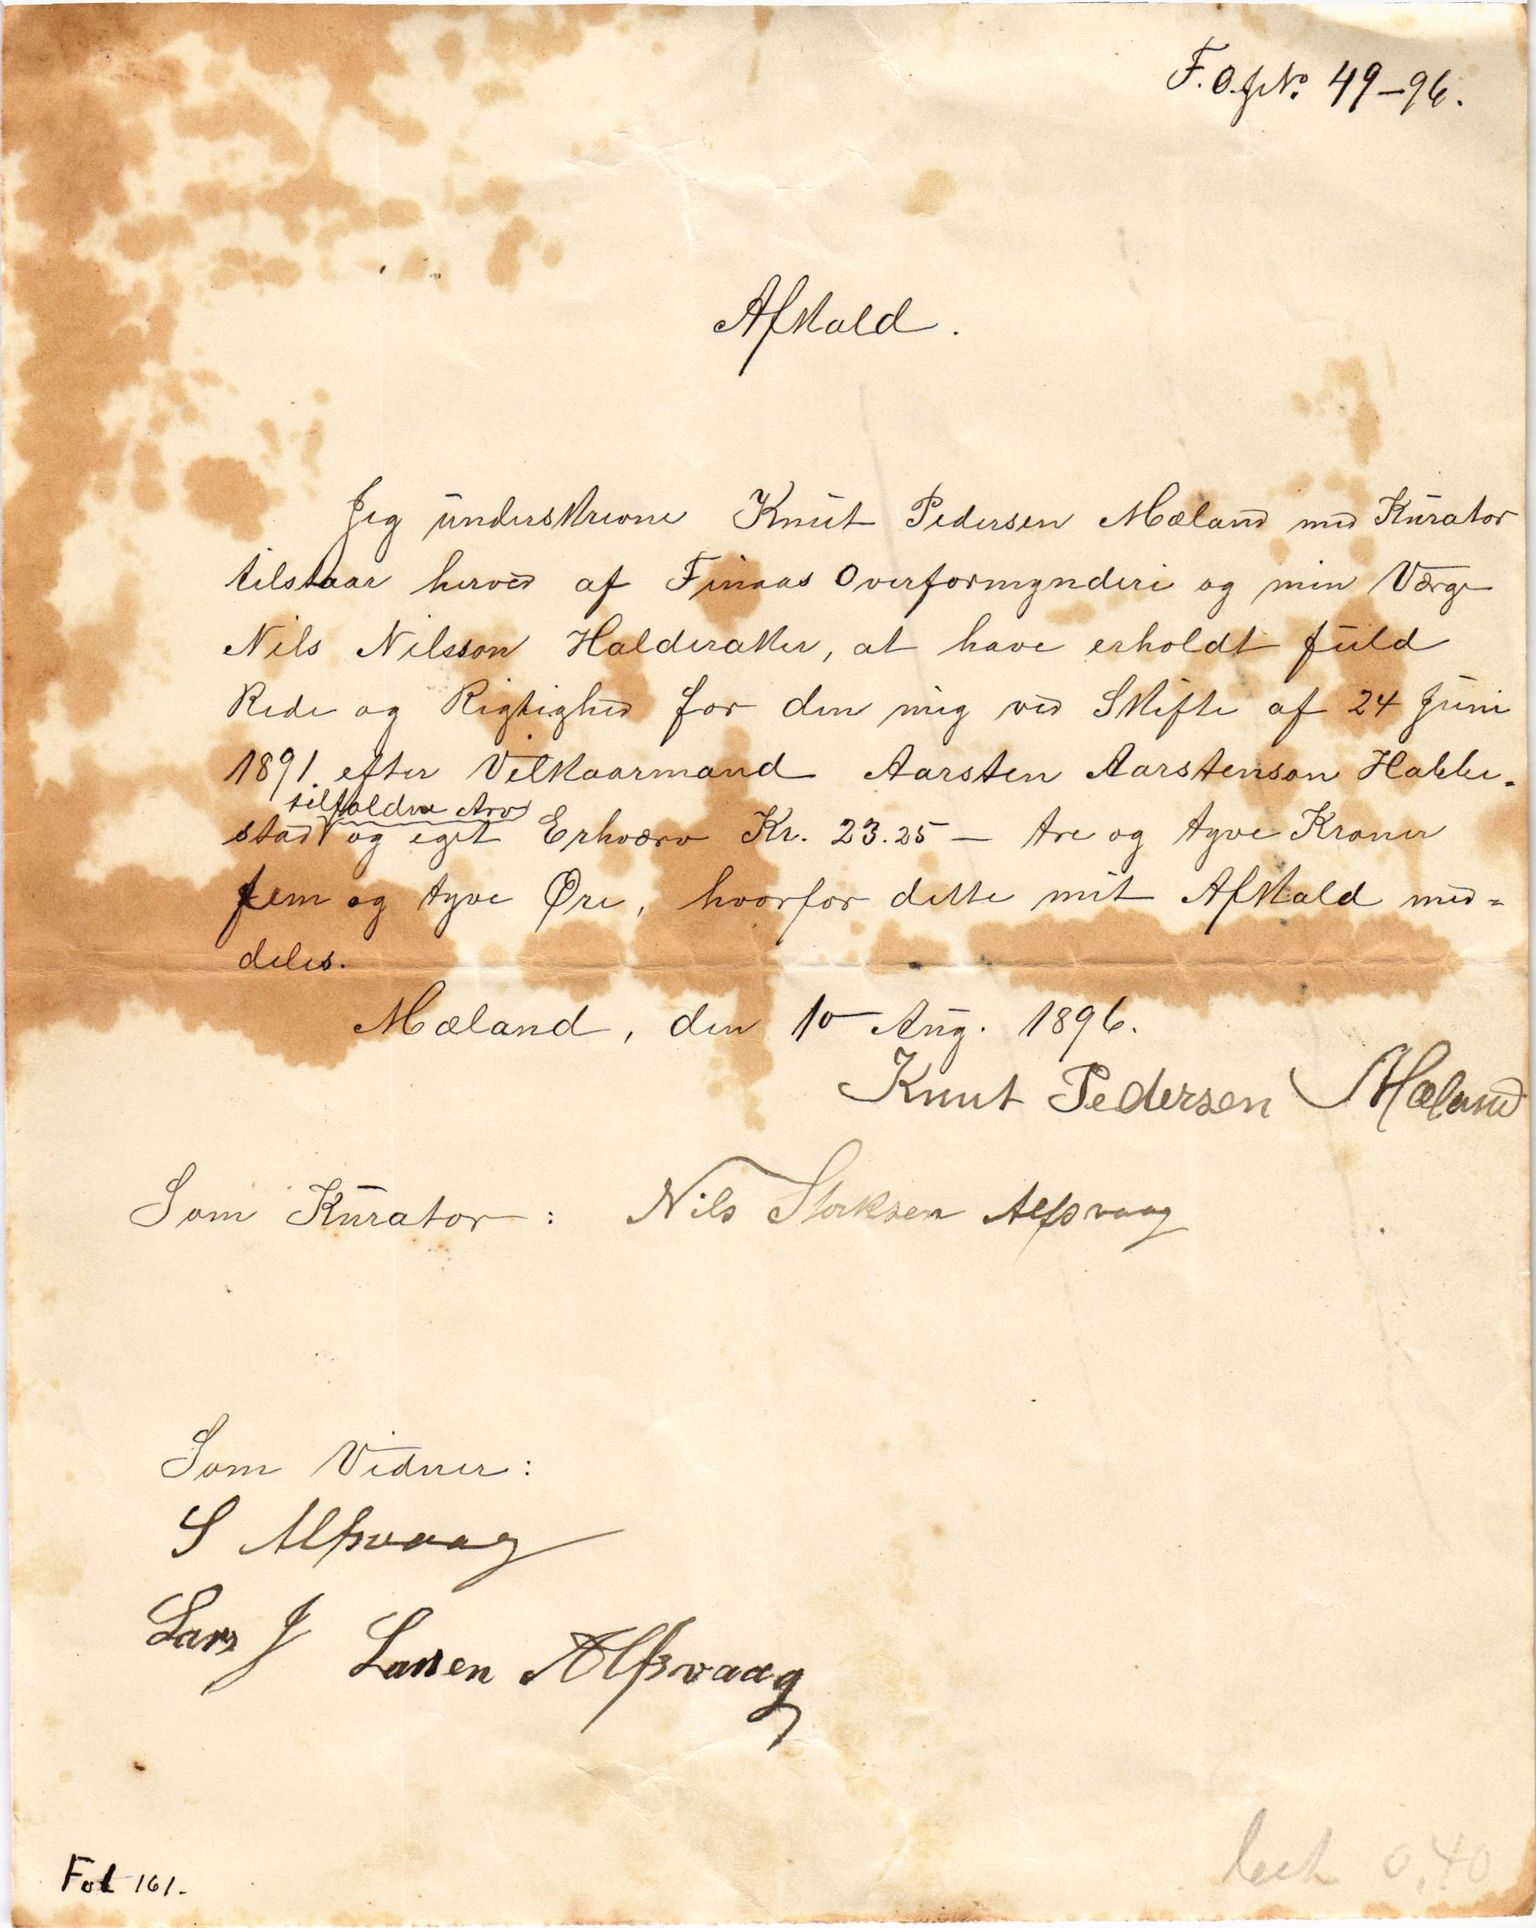 F. O. J No. 49-96.
Afkald.
Jeg underskrevne Knut Pedersen Mæland med Kurator
tilstaar herved af Finaas Overformynderi og min Værge
Nils Nilsson Halderaker, at have erholdt fuld
Rede og Rigtighed for den mig ved Skifte af 24 Juni
1891 efter Vilkaarmand Aarsten Aarstenson Hakke-
tilfaldne Arv
stad og eget Erhværv Kr. 23.25 — tre og tyve Kroner
fem og tyve Øre, hvorfor dette mit Afkald med=
deles.
Mæland, den 10 Aug. 1896.
Knut Pedersen Mæland
Som Kurator: Nils Storksen Alfsvaag
Som Vidner:
S Alfsvaag
Lars J Larsen Alfsvaag
Fol 161.
0,40